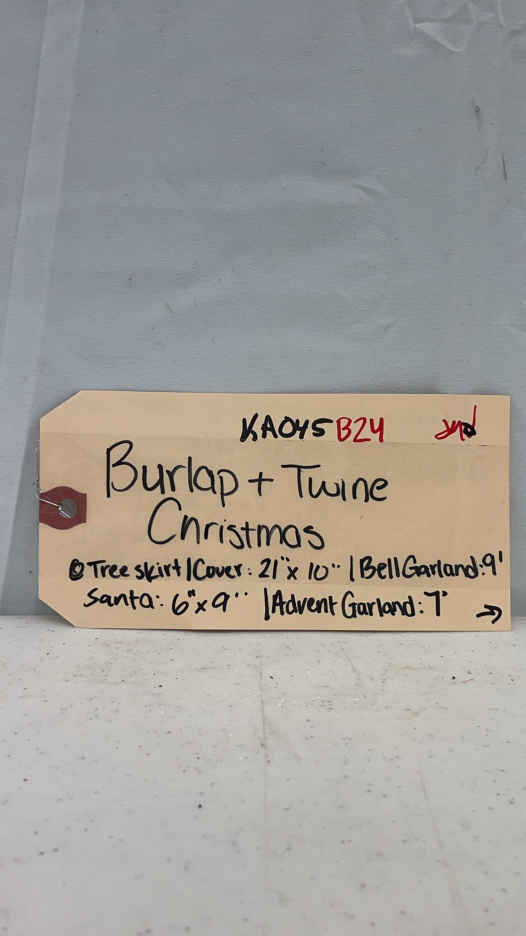 KA045 B24
Burlap + Twine
Christmas
Tree skirt | Cover: 21" x 10" | Bell Garland: 9'
Santa: 6" x 9" | Advent Garland: 7'
→